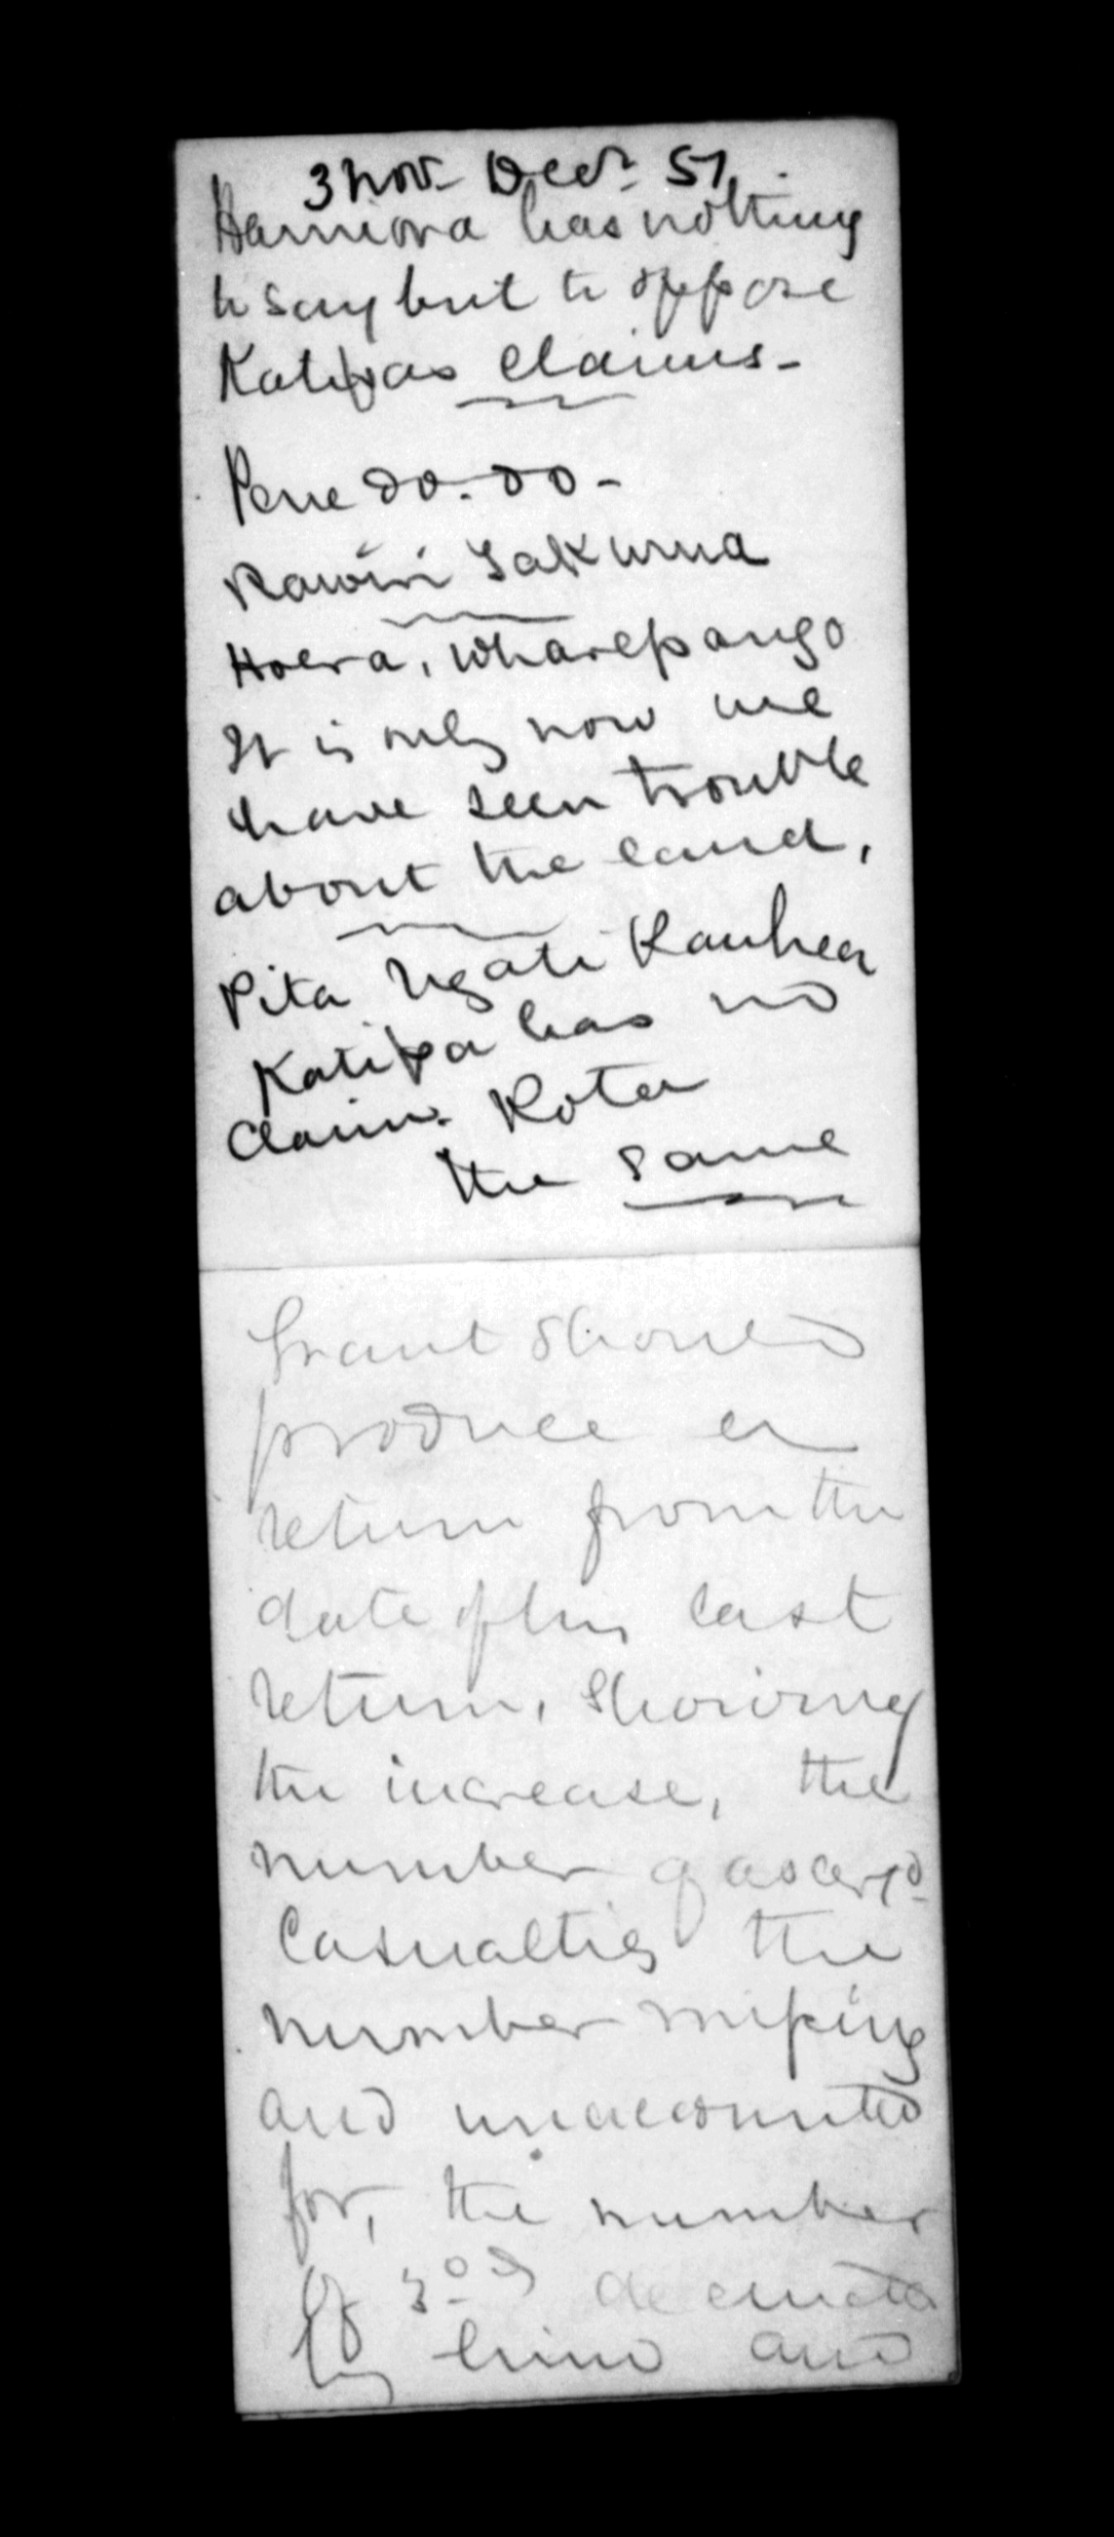 3 Nov- Decr. 51.
Hamiora has nothing
to say but to oppose
Katipas claims-
Pene do. do-
Rawiri Takurua
Hoera, Wharepango
It is only now we
have seen trouble
about the land,
Pita Ngati Rauhea
Katipa has no
claim. Rota
the same
Grant should
produce a
return from the
date of his last
return, showing
the increase, the
number of ascertd
Casualties the
number missing
and unaccounted
for, the number
of
by him and